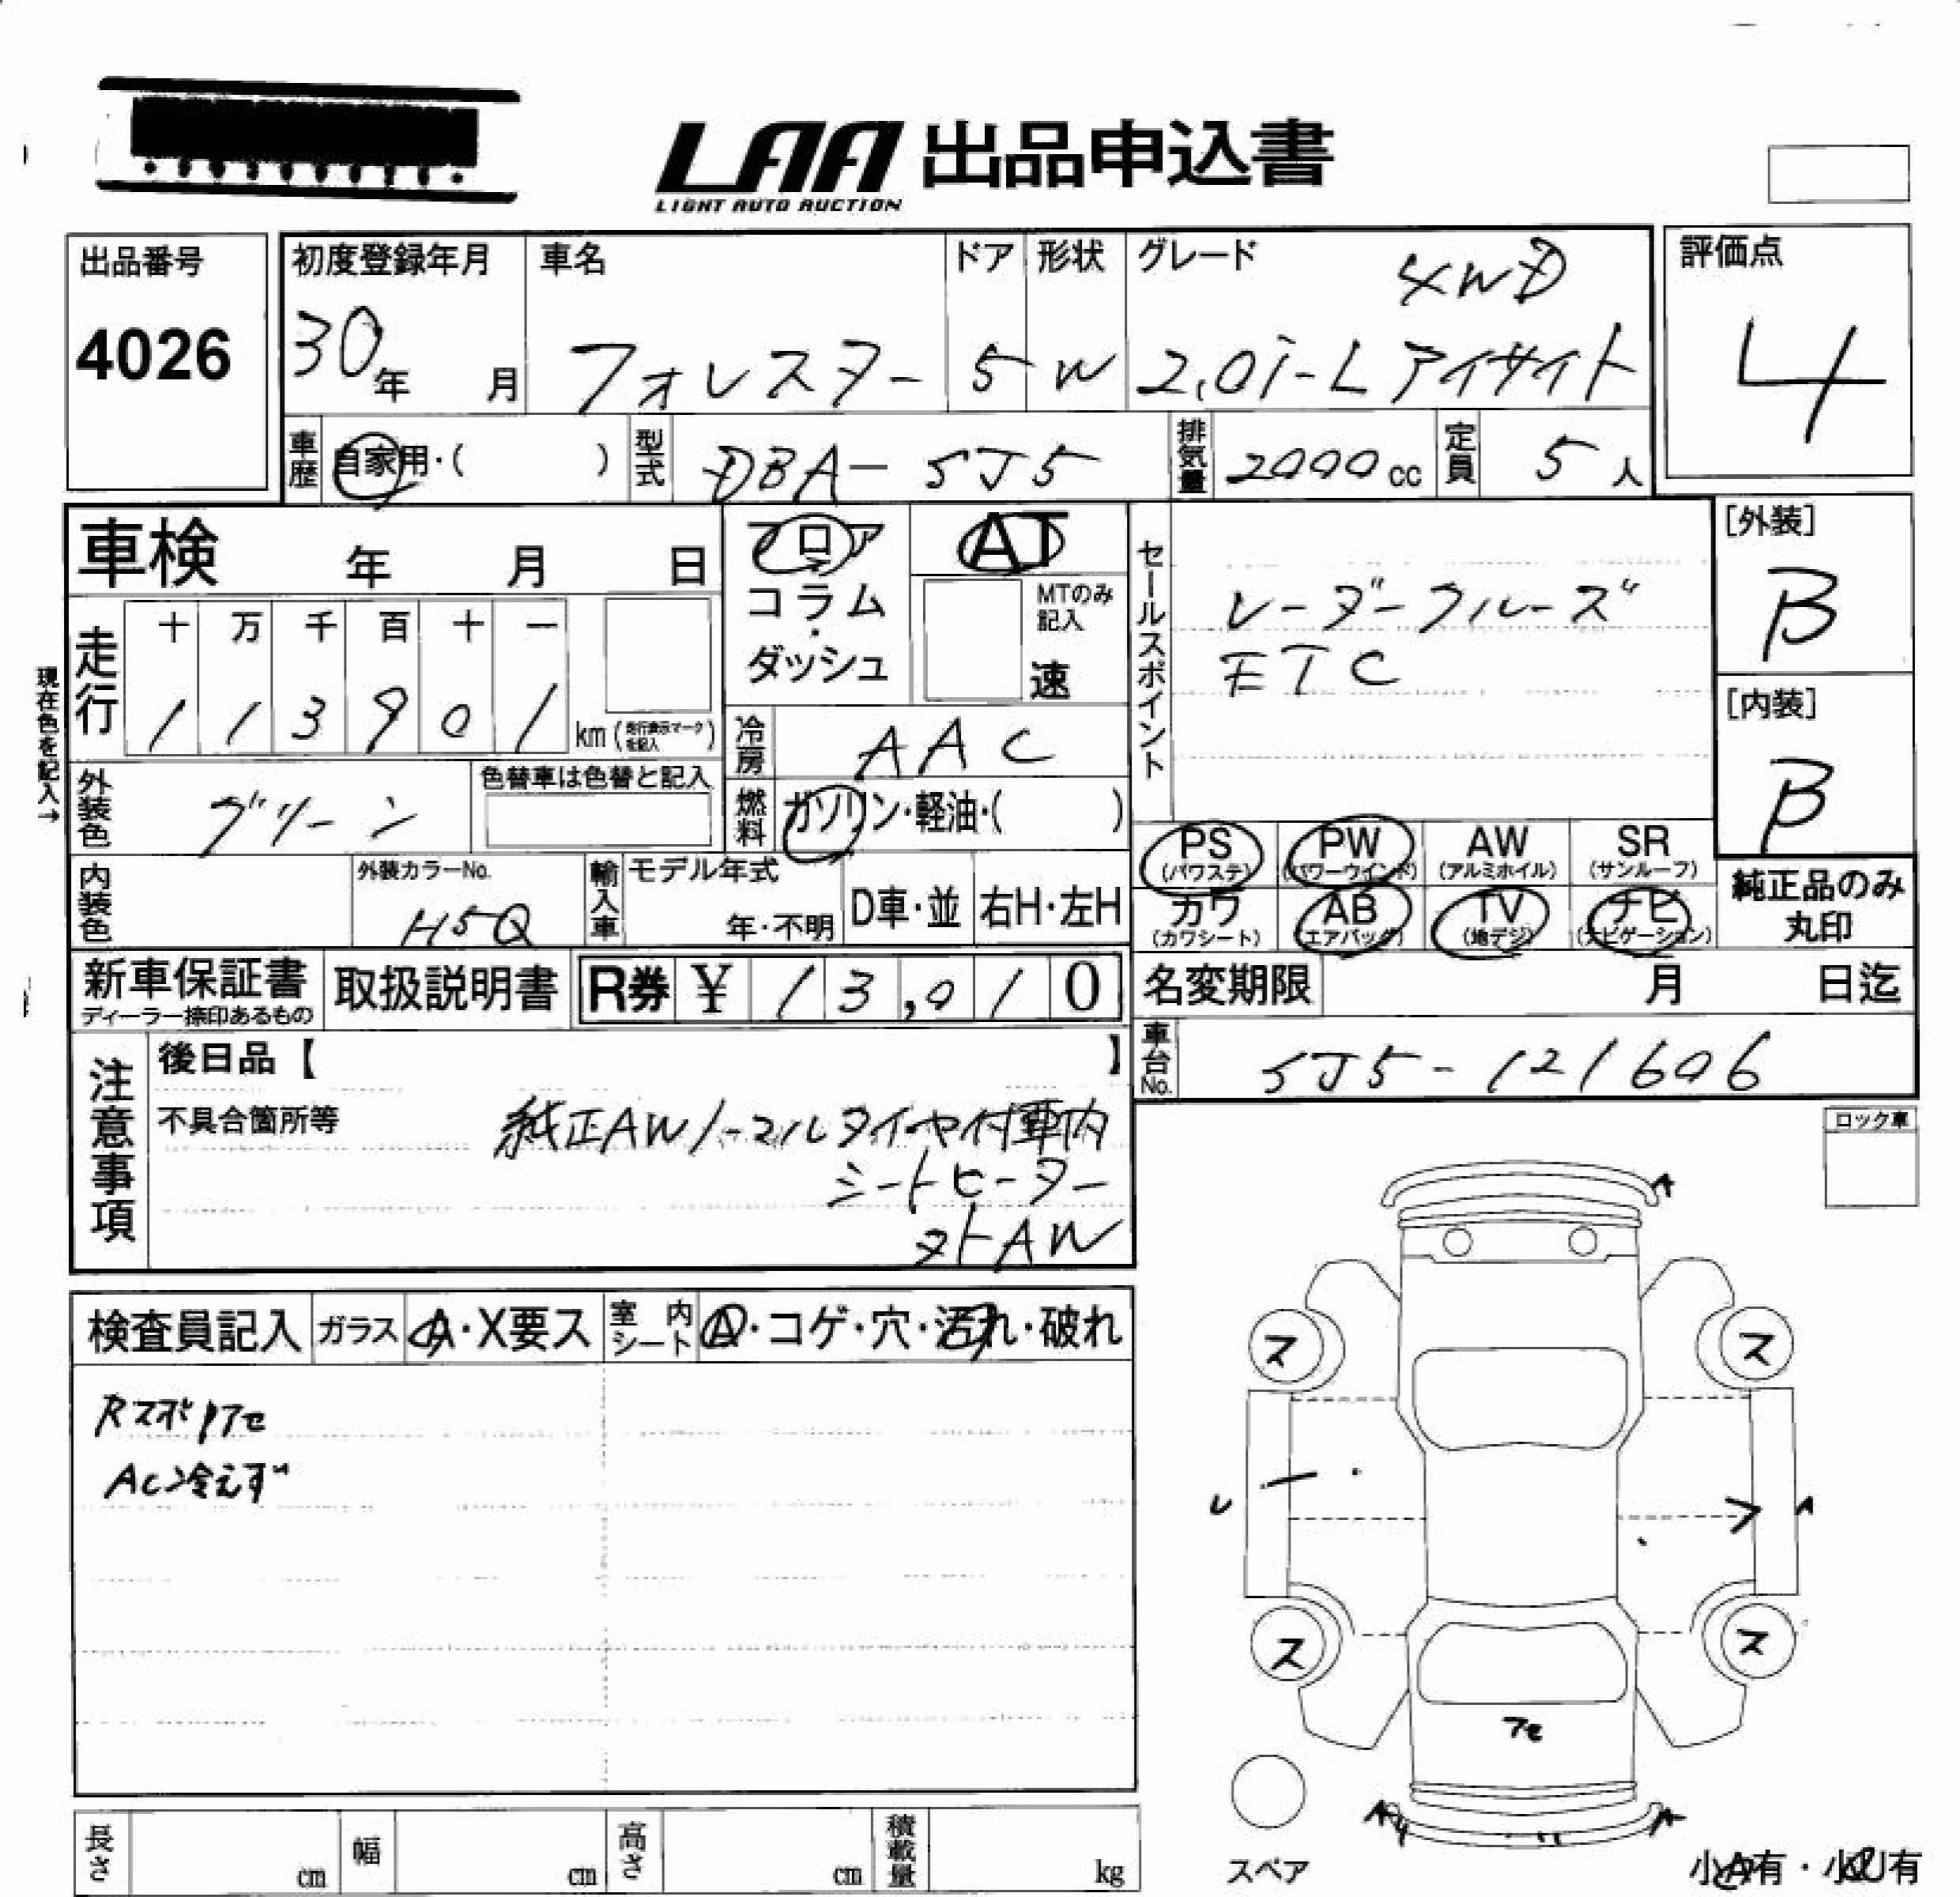 LAA 出品申込書
LIGHT AUTO AUCTION
出品番号
4026
初度登録年月
30年 月
車名
フォレスター
ドア
5
形状
W
グレード
4WD
2.0i-L アイサイト
評価点
4
車歴 自家用・( )
型式 DBA-SJ5
排気量 2000cc
定員 5人
車検 年 月 日
フロア
コラム
・
ダッシュ
AT
MTのみ
記入
速
セールスポイント
レーダークルーズ
ETC
[外装]
B
[内装]
B
現在色を記入→
走行
十 万 千 百 十 一
1 1 3 9 0 1 km(走行表示マークを記入)
冷房 AAC
外装色 グリーン
色替車は色替と記入
燃料 ガソリン・軽油・( )
内装色
外装カラーNo.
H5Q
輸入車
モデル年式
年・不明
D車・並
右H・左H
PS
(パワステ)
PW
(パワーウインド)
AW
(アルミホイル)
SR
(サンルーフ)
カワ
(カワシート)
AB
(エアバッグ)
TV
(地デジ)
ナビ
(ナビゲーション)
純正品のみ
丸印
新車保証書
ディーラー捺印あるもの
取扱説明書
R券 ¥ 13,010
名変期限 月 日迄
車台No. SJ5-121606
注意事項
後日品【 】
不具合箇所等
純正AWノーマルタイヤ付車内
シートヒーター
ヌトAW
ロック車
検査員記入
ガラス A・X要ス
室内シート A・コゲ・穴・汚れ・破れ
Rスポイアセ
AC冷えず
A
ス
ス
A
ス
ス
アセ
A
A
スペア
小A有・小U有
長さ cm
幅 cm
高さ cm
積載量 kg